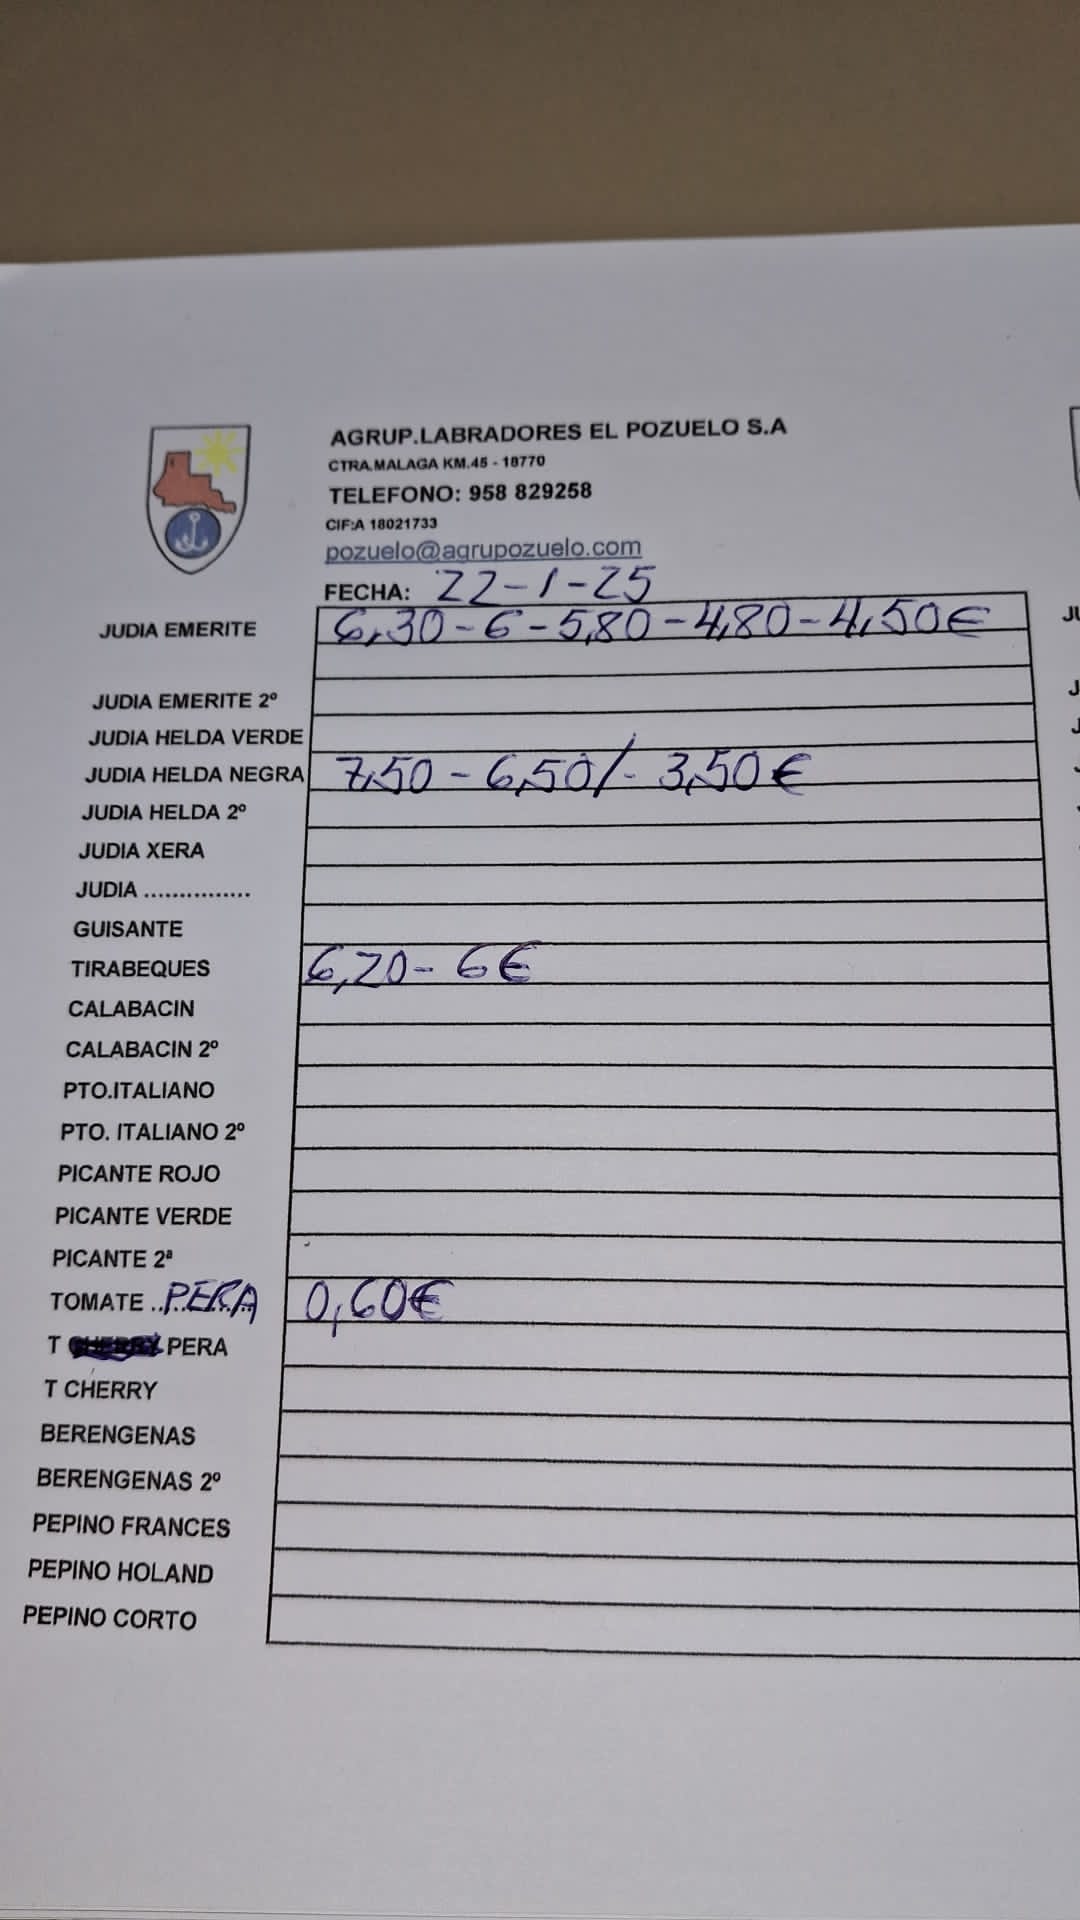 AGRUP.LABRADORES EL POZUELO S.A
CTRA.MALAGA KM.45 - 18770
TELEFONO: 958 829258
CIF:A 18021733
pozuelo@agrupozuelo.com
FECHA: 22-1-25
JUDIA EMERITE 6,30-6-5,80-4,80-4,50€
JUDIA EMERITE 2º
JUDIA HELDA VERDE
JUDIA HELDA NEGRA 7,50-6,50/- 3,50€
JUDIA HELDA 2º
JUDIA XERA
JUDIA ...............
GUISANTE
TIRABEQUES 6,20-6€
CALABACIN
CALABACIN 2º
PTO.ITALIANO
PTO. ITALIANO 2º
PICANTE ROJO
PICANTE VERDE
PICANTE 2ª
TOMATE ..PERA 0,60€
T PERA
T CHERRY
BERENGENAS
BERENGENAS 2º
PEPINO FRANCES
PEPINO HOLAND
PEPINO CORTO